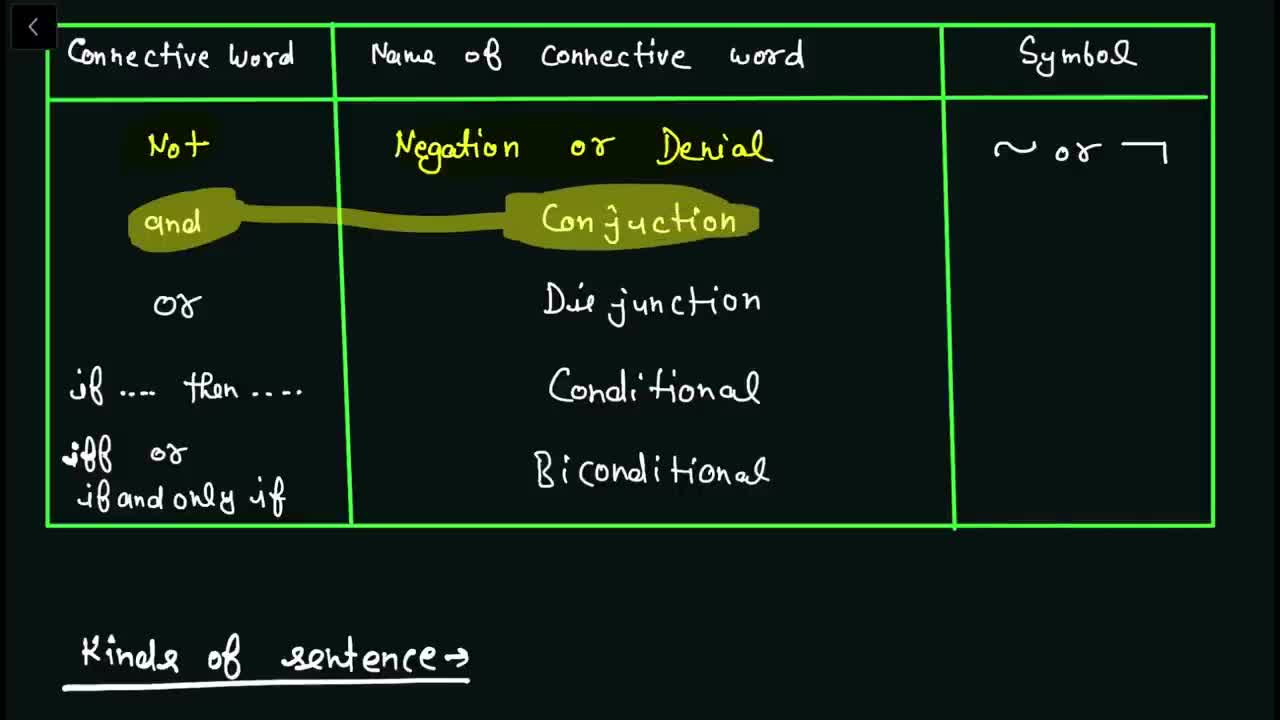 Connective Word Name of connective word Symbol
Not Negation or Denial ~ or ¬
and Conjuction
or Disjunction
if .... then ..... Conditional
iff or Biconditional
if and only if
Kinds of sentence →